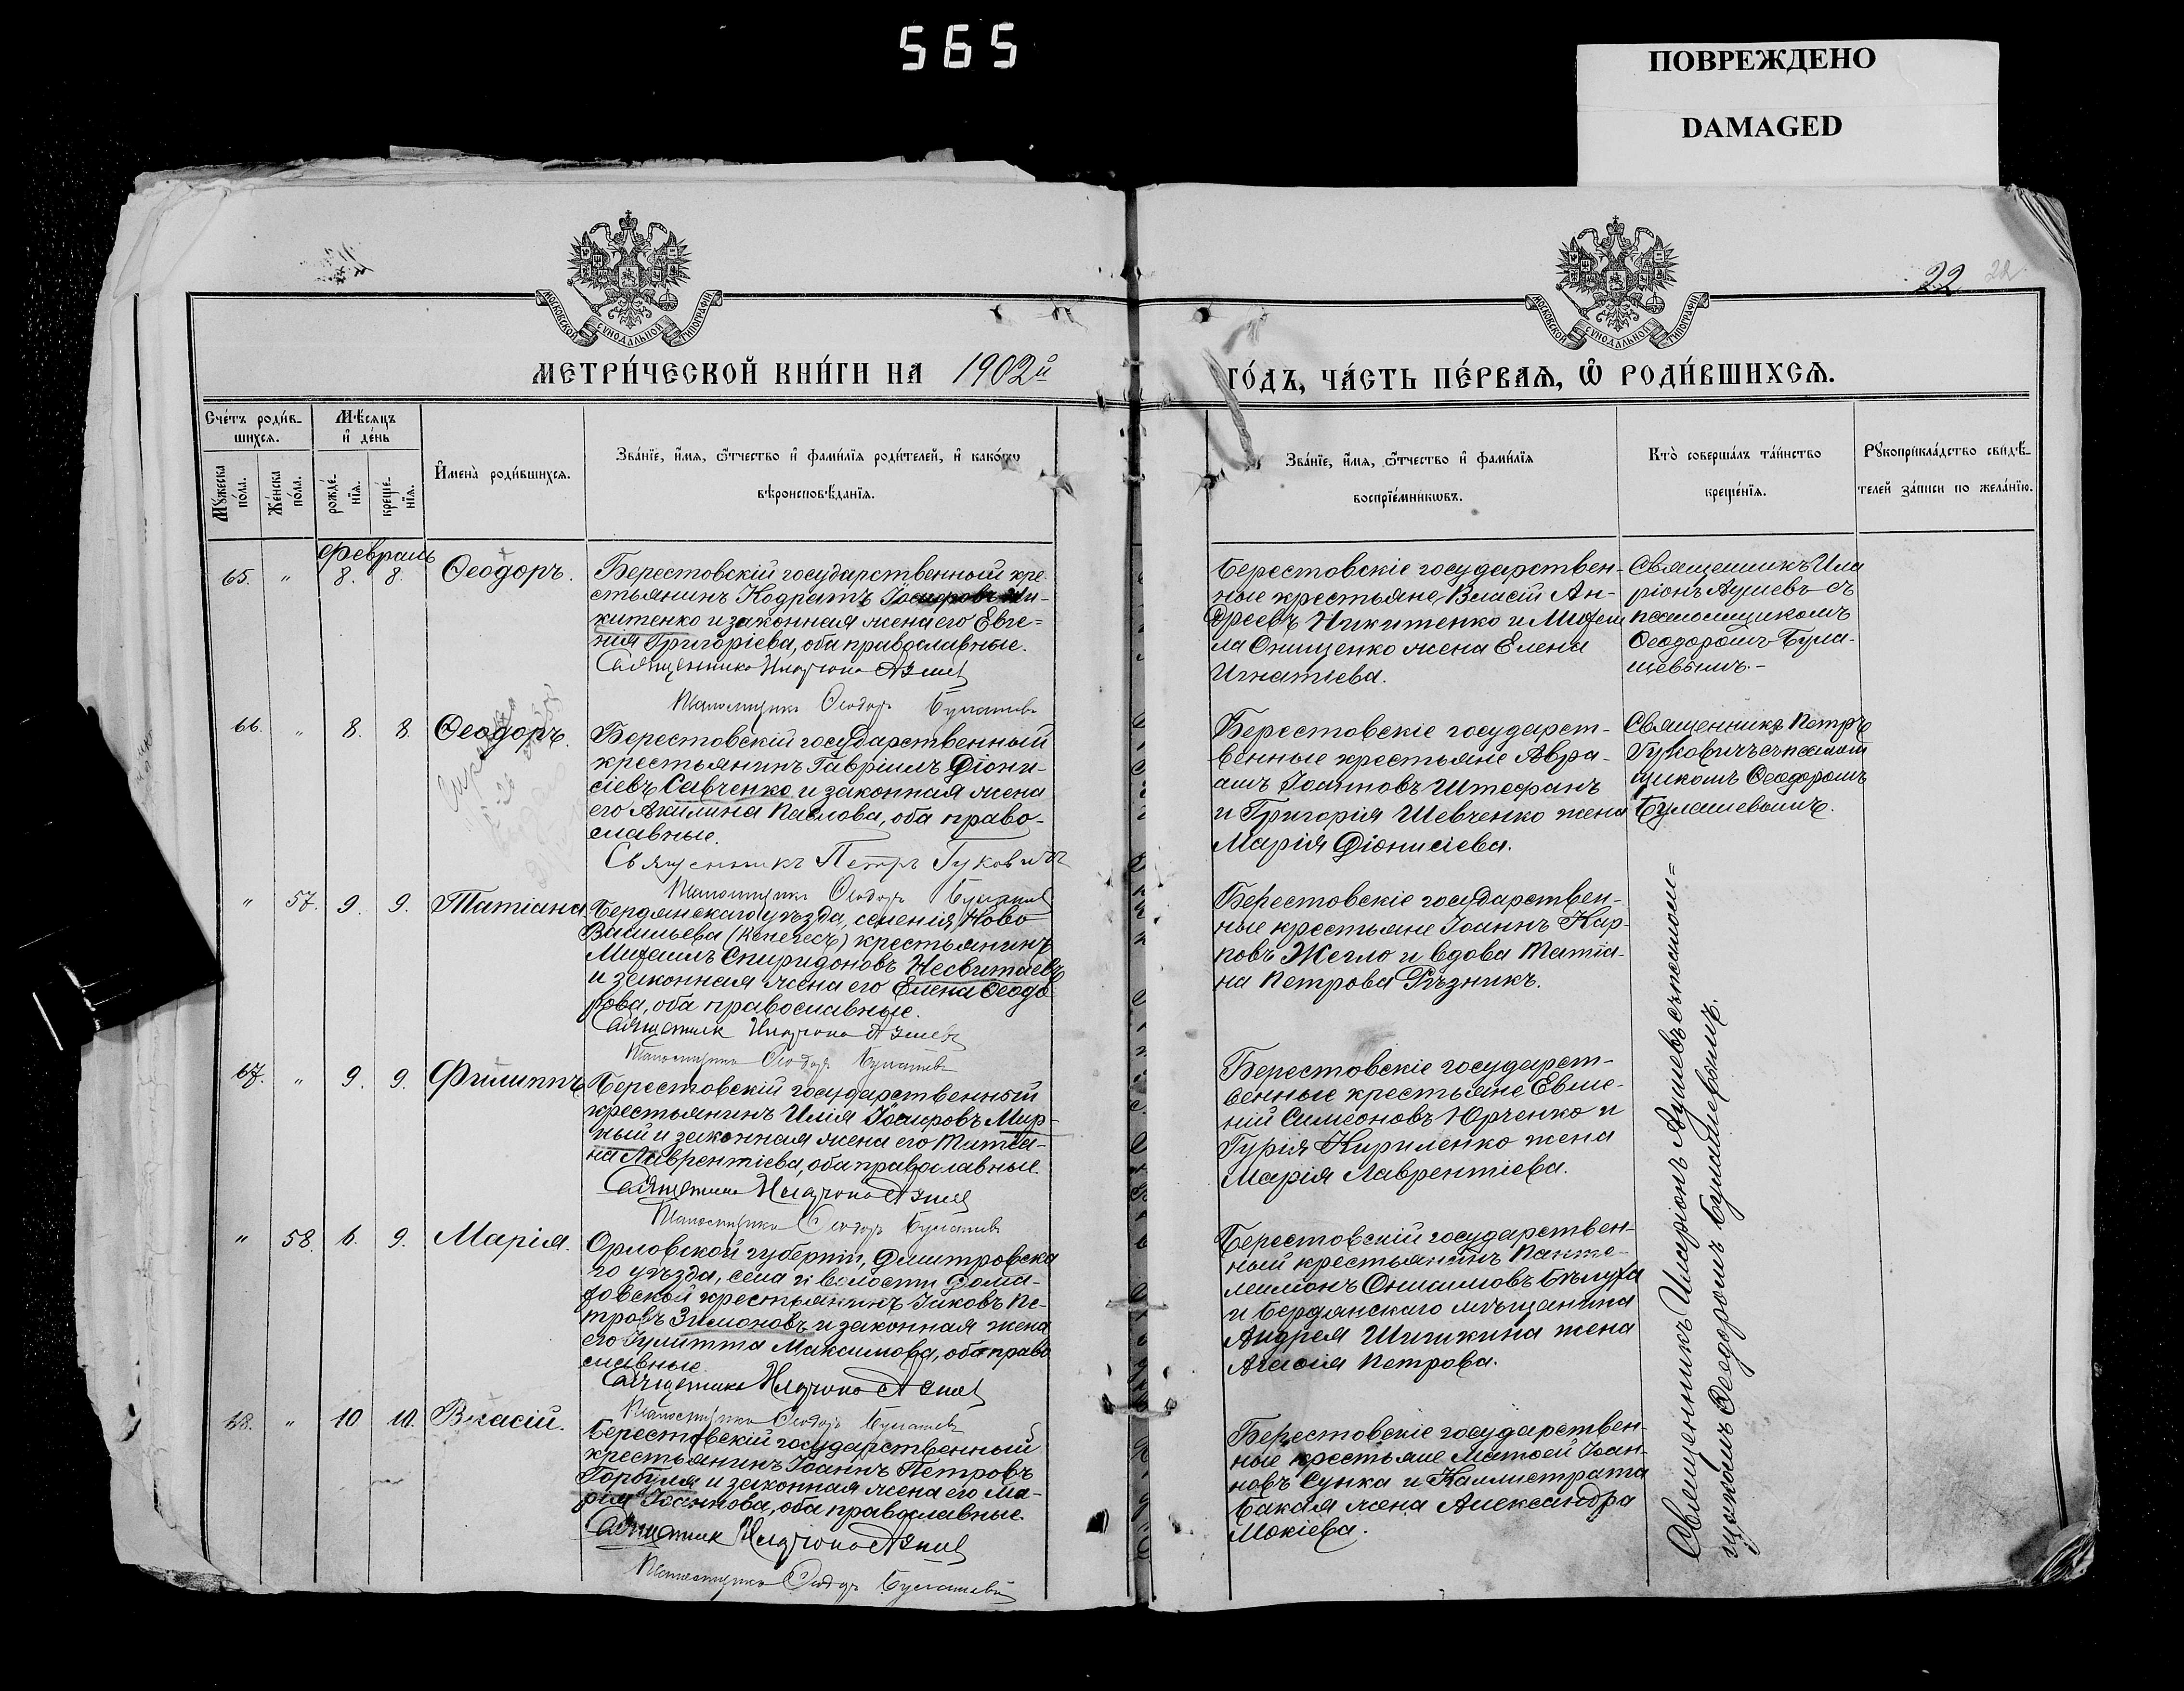 565
ПОВРЕЖДЕНО
DAMAGED
22
22
МОСКОВСКОЙ СѴНОДАЛЬНОЙ ТИПОГРАФІИ
МОСКОВСКОЙ СѴНОДАЛЬНОЙ ТИПОГРАФІИ
МЕТРИ́ЧЕСКОЙ КНИ́ГИ НА 1902й
ГО́ДЪ, ЧА́СТЬ ПЕ́РВАѦ, Ѡ҆ РОДИ́ВШИХСѦ.
Сче́тъ роди́в-
шихсѧ.
Мѣ́сѧцъ
и҆ де́нь
Мꙋ́жеска по́ла.
Же́нска по́ла.
рожде́-
нїѧ.
креще́-
нїѧ.
И҆мена̀ роди́вшихсѧ.
Зва́нїе, и҆́мѧ, ѻ҆́тчество и҆ фами́лїѧ роди́телей, и҆ како́гѡ
вѣроисповѣ́данїѧ.
Зва́нїе, и҆́мѧ, ѻ҆́тчество и҆ фами́лїѧ
воспрїе́мникѡвъ.
Кто̀ соверша́лъ та́инство
креще́нїѧ.
Рꙋкоприкла́дство свидѣ́-
телей за́писи по жела́нїю.
Февраль
65. " 8. 8. Ѳеодоръ.
Берестовскій государственный кре
стьянинъ Кодратъ Іосифовъ Ни-
китенко и законная жена его Евге=
нія Григоріева, оба православные.
Священникъ Иларіонъ Ашев
Псаломщикъ Ѳеодоръ Булашевъ
Берестовскіе государствен-
ные крестьяне, Власій Ан-
дреевъ Никитенко и Михаи
ла Онищенко жена Елена
Игнатіева.
Священникъ Ила
ріонъ Ашевъ съ
псаломщикомъ
Ѳеодоромъ Була-
шевымъ.-
66. " 8. 8. Ѳеодоръ.
Берестовскій государственный
крестьянинъ Гавріилъ Діони-
сіевъ Савченко и законная жена
его Акилина Павлова, оба право-
славные.
Священникъ Петръ Гуковичъ
Псаломщикъ Ѳеодоръ Булашев
Берестовскіе государст-
венные крестьяне Авра-
амъ Іоанновъ Штефанъ
и Григорія Шевченко жена
Марія Діонисіева.
Священникъ Петръ
Гуковичъ съ псалом
щикомъ Ѳеодоромъ
Булашевымъ.
" 57. 9. 9. Татіана
Бердянскаго уѣзда, селенія Ново
Васильева (Кенегесъ) крестьянинъ
Михаилъ Спиридоновъ Несвитаевъ
и законная жена его Елена Ѳеодо
рова, оба православные.
Священник Иларіонъ Ашевъ
Псаломщикъ Ѳеодоръ Булашевъ
Берестовскіе государствен-
ные крестьяне Іоаннъ Кар-
повъ Жегло и вдова Татіа-
на Петрова Рѣзникъ.
67. " 9. 9. Филиппъ
Берестовскій государственный
крестьянинъ Илія Іосифовъ Мир-
ный и законная жена его Татіа-
на Лаврентіева, оба православные.
Священникъ Иларіонъ Ашев
Псаломщикъ Ѳеодоръ Булашевъ
Берестовскіе государст-
венные крестьяне Евме-
ній Симеоновъ Юрченко и
Гурія Кириленко жена
Марія Лаврентіева.
" 58. 6. 9. Марія.
Орловской губерніи, Дмитровска
го уѣзда, села и волости Дома-
ховской крестьянинъ Іаковъ Пе-
тровъ Зимоновъ и законная жена
его Іулитта Максимова, оба право
славные.
Священникъ Иларіонъ Ашев
Псаломщикъ Ѳеодоръ Булашевъ
Берестовскій государствен-
ный крестьянинъ Панте-
леимонъ Онисимовъ Бѣлуха
и Бердянскаго мѣщанина
Андрея Шишкина жена
Агаѳія Петрова.
68. " 10 10. Власій.
Берестовскій государственный
крестьянинъ Іоаннъ Петровъ
Горбуля и законная жена его Ма-
рія Іоаннова, оба православные.
Священник Иларіонъ Ашев
Псаломщикъ Ѳеодоръ Булашевъ
Берестовскіе государствен-
ные крестьяне Матѳей Іоан-
новъ Сунка и Каллистрата
Бакая жена Александра
Мокіева.
Священникъ Иларіонъ Ашевъ съ псалом=
щикомъ Ѳеодоромъ Булашевымъ.